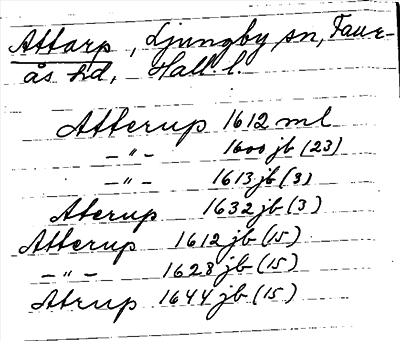 Attarp, Ljungby sn, Faur-
ås hd, Hall. l.
Atterup 1612 ml
– " – 1600 jb (23)
– " – 1613 jb (3)
Aterup 1632 jb (3)
Atterup 1612 jb (15)
– " – 1628 jb (15)
Atrup 1644 jb (15)